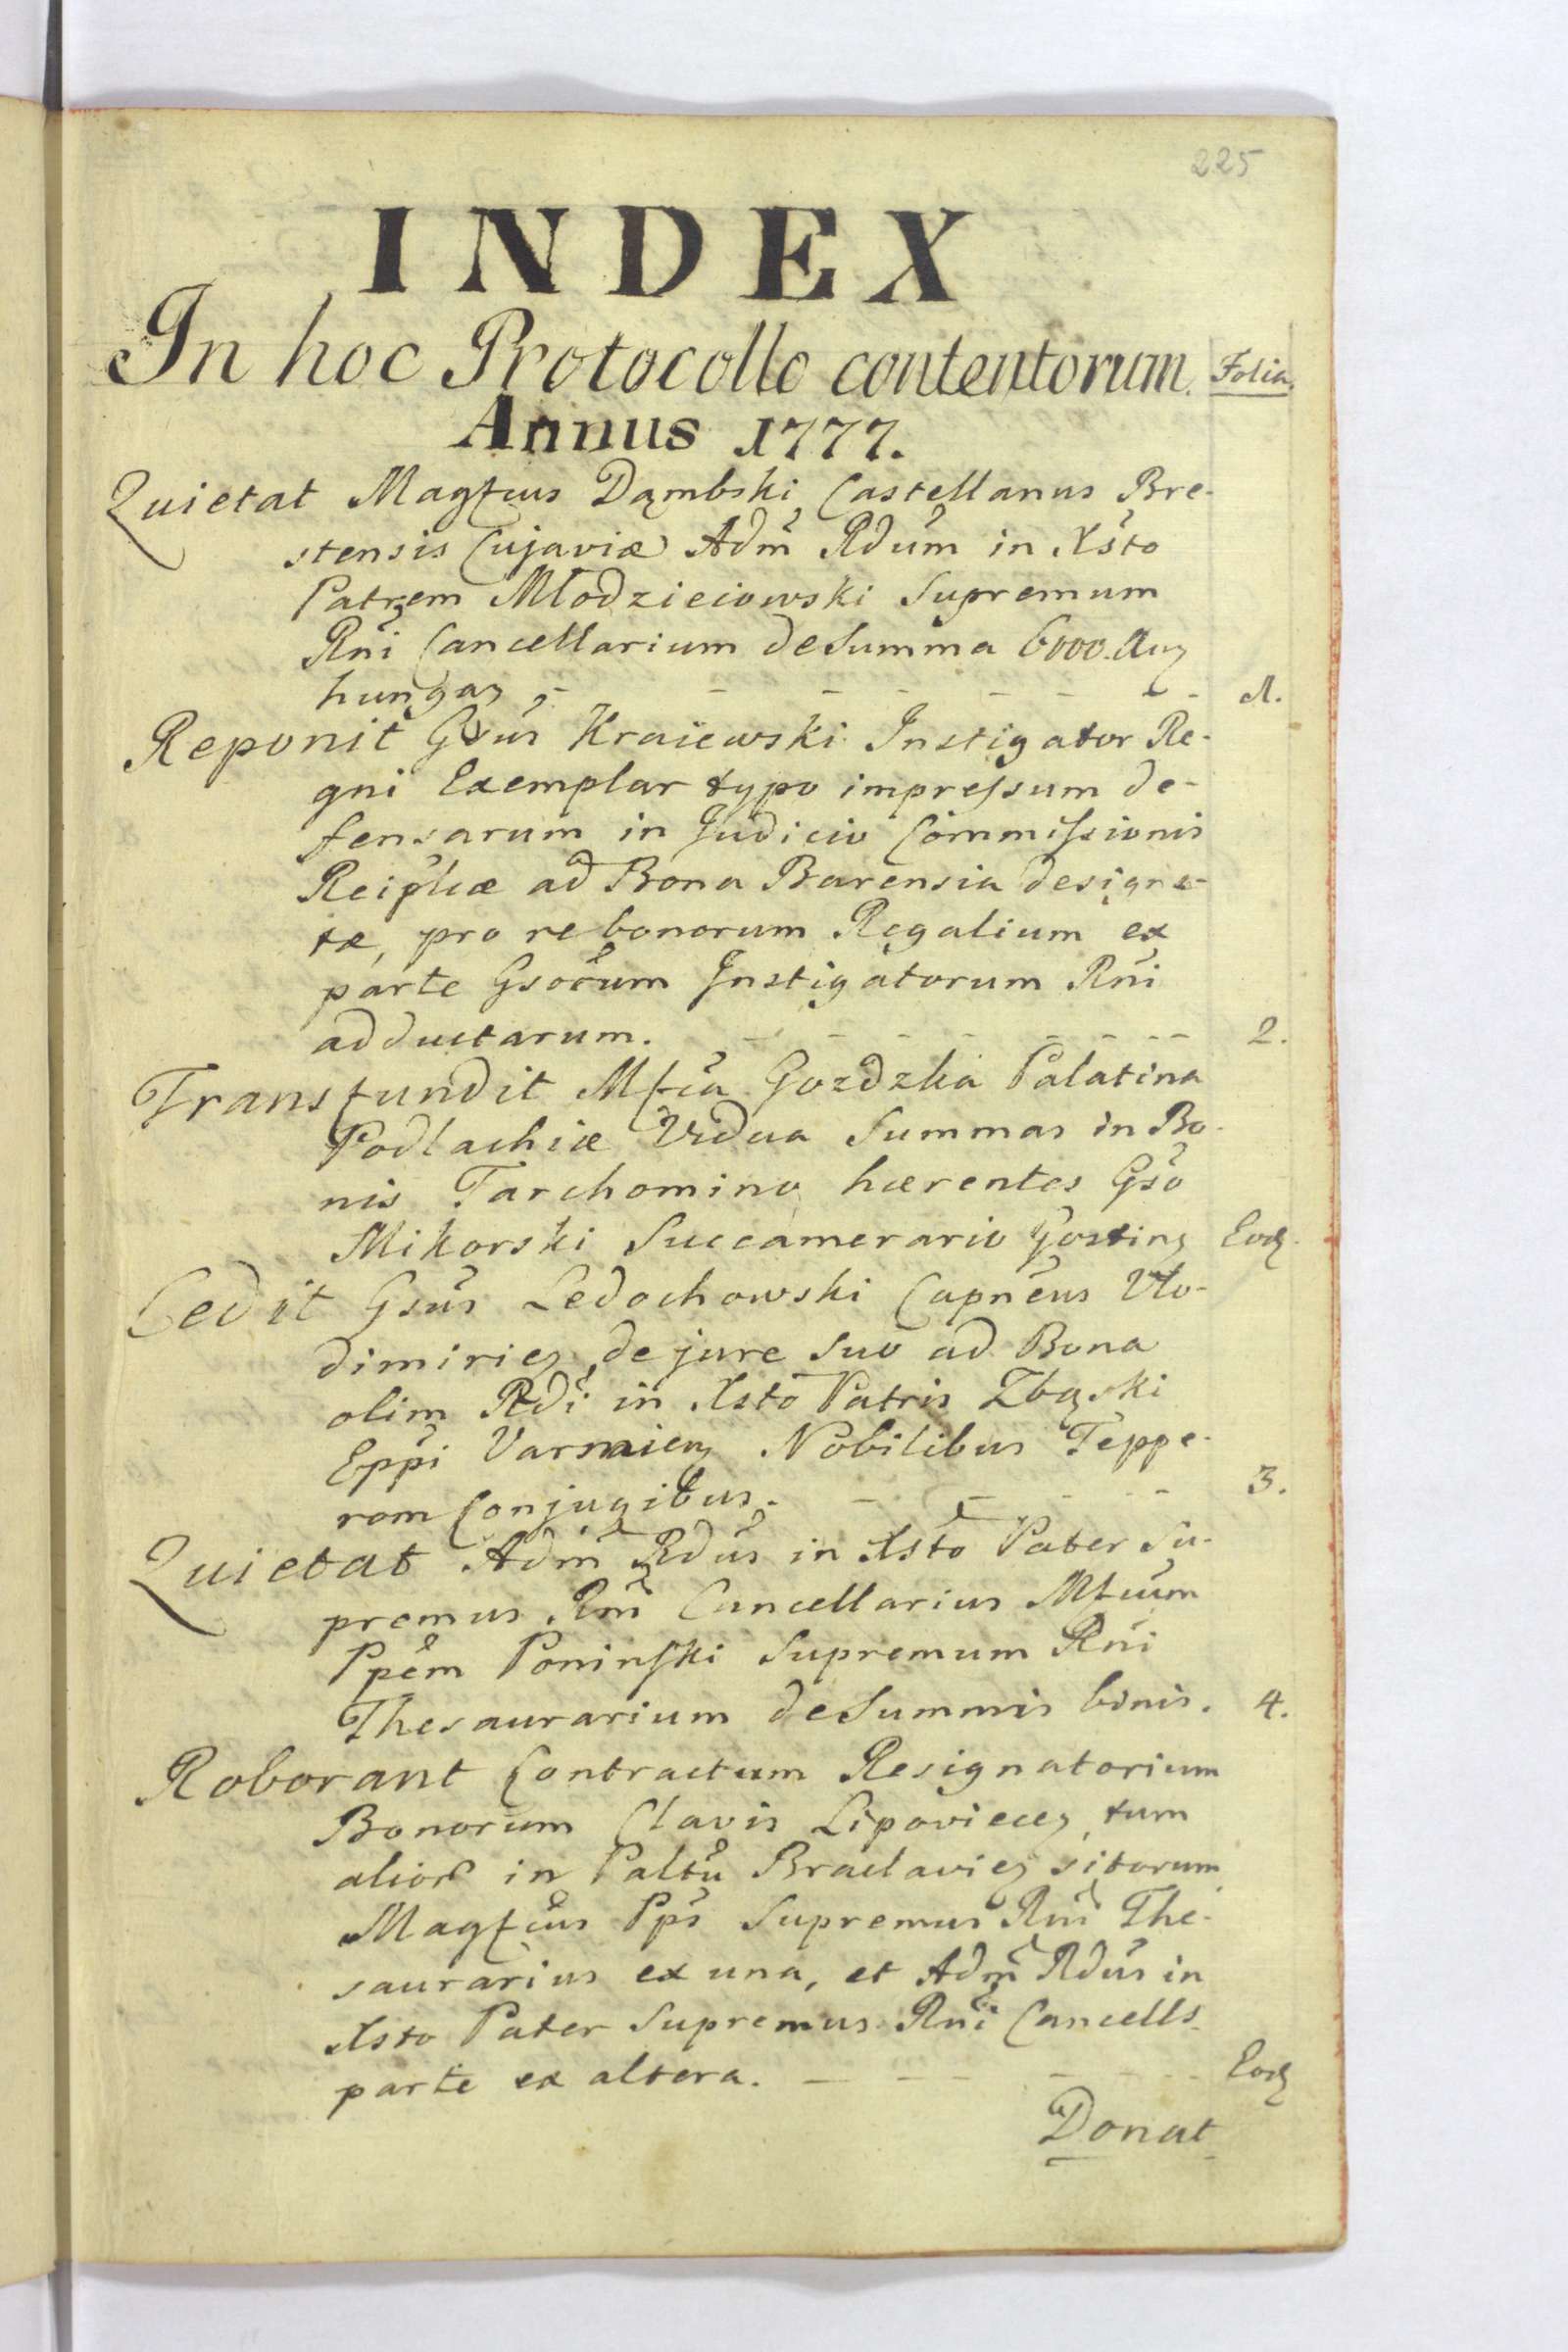 225
INDEX
In hoc Protocollo contentorum. Folia.
Annus 1777.
Quietat Magfcus Dąmbski Castellanus Bre-
stensis Cujaviæ Adm̃ Rdũm in Xsto
Patrem Młodzieiowski Supremum
Rñi Cancellarium de Summa 6000. Auꝫ
hungaꝫ, - - - - - - - 1.
Reponit Gsũs Kraiewski Instigator Re-
gni Exemplar typo impreſsum de-
fensarum in Judicio Commiſsionis
Reiplicæ ad Bona Barensia designa-
tæ, pro re bonorum Regalium ex
parte Gsorũm Instigatorum Rñi
adductarum. - - - - - - - 2.
Transfundit Mfca Gozdzka Palatina
Podlachiæ Vidua Summas in Bo-
nis Tarchomino hærentes Gsõ
Mikorski Succamerario Gostinꝫ Eodꝫ
Cedit Gsũs Ledochowski Capnẽus Vlo-
dimirieꝫ de jure suo ad Bona
olim Rdĩ in Xstõ Patris Zbąski
Eppĩ Varmienꝫ Nobilibus Teppe-
rom Conjugibus. - - - - - 3.
Quietat Adm̃ Rdũs in Xstõ Pater Su-
premus Rñi Cancellarius Mfcũm
Ppẽm Poninſki Supremum Rñi
Thesaurarium de Summis binis. 4.
Roborant Contractum Resignatorium
Bonorum Clavis Lipovieceꝫ, tum
alior in Paltũ Braclavieꝫ sitorum
Magfcũs Pps̃ Supremus Rñi The-
saurarius ex una, et Adm̃ Rdũs in
Xsto Pater Supremus Rñi Cancells
parte ex altera. - - - - - Eodꝫ
Donat